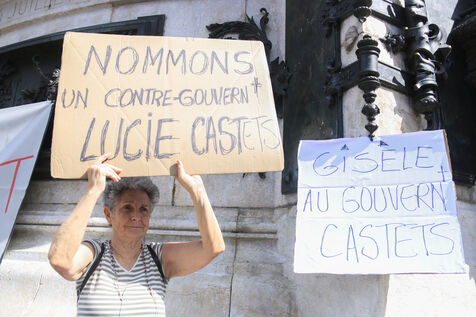 NOMMONS
UN CONTRE-GOUVERNT
LUCIE CASTETS
GISÈLE
AU GOUVERNT
CASTETS
T